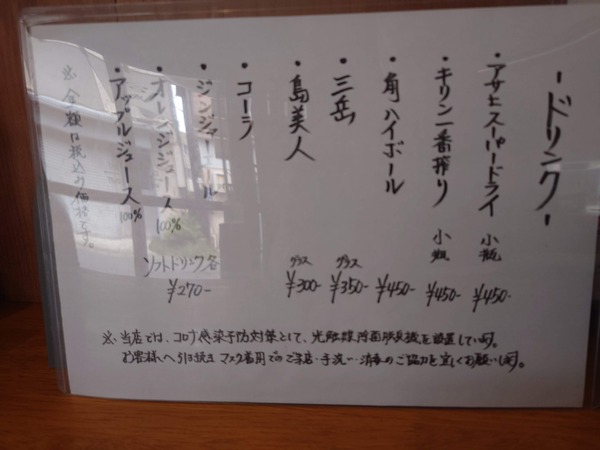 -ドリンク-
・アサヒスーパードライ 小瓶 ¥450-
・キリン一番搾り 小瓶 ¥450-
・角ハイボール ¥450-
・三岳 グラス ¥350-
・島美人 グラス ¥300-
・コーラ
・ジンジャーエール
・オレンジジュース 100%
・アップルジュース 100%
ソフトドリンク各 ¥270-
※金額は税込み価格です。
※当店では、コロナ感染予防対策として、光触媒除菌脱臭機を設置しています。
お客様へ引き続き マスク着用でのご来店・手洗い・消毒のご協力を宜しくお願いします。